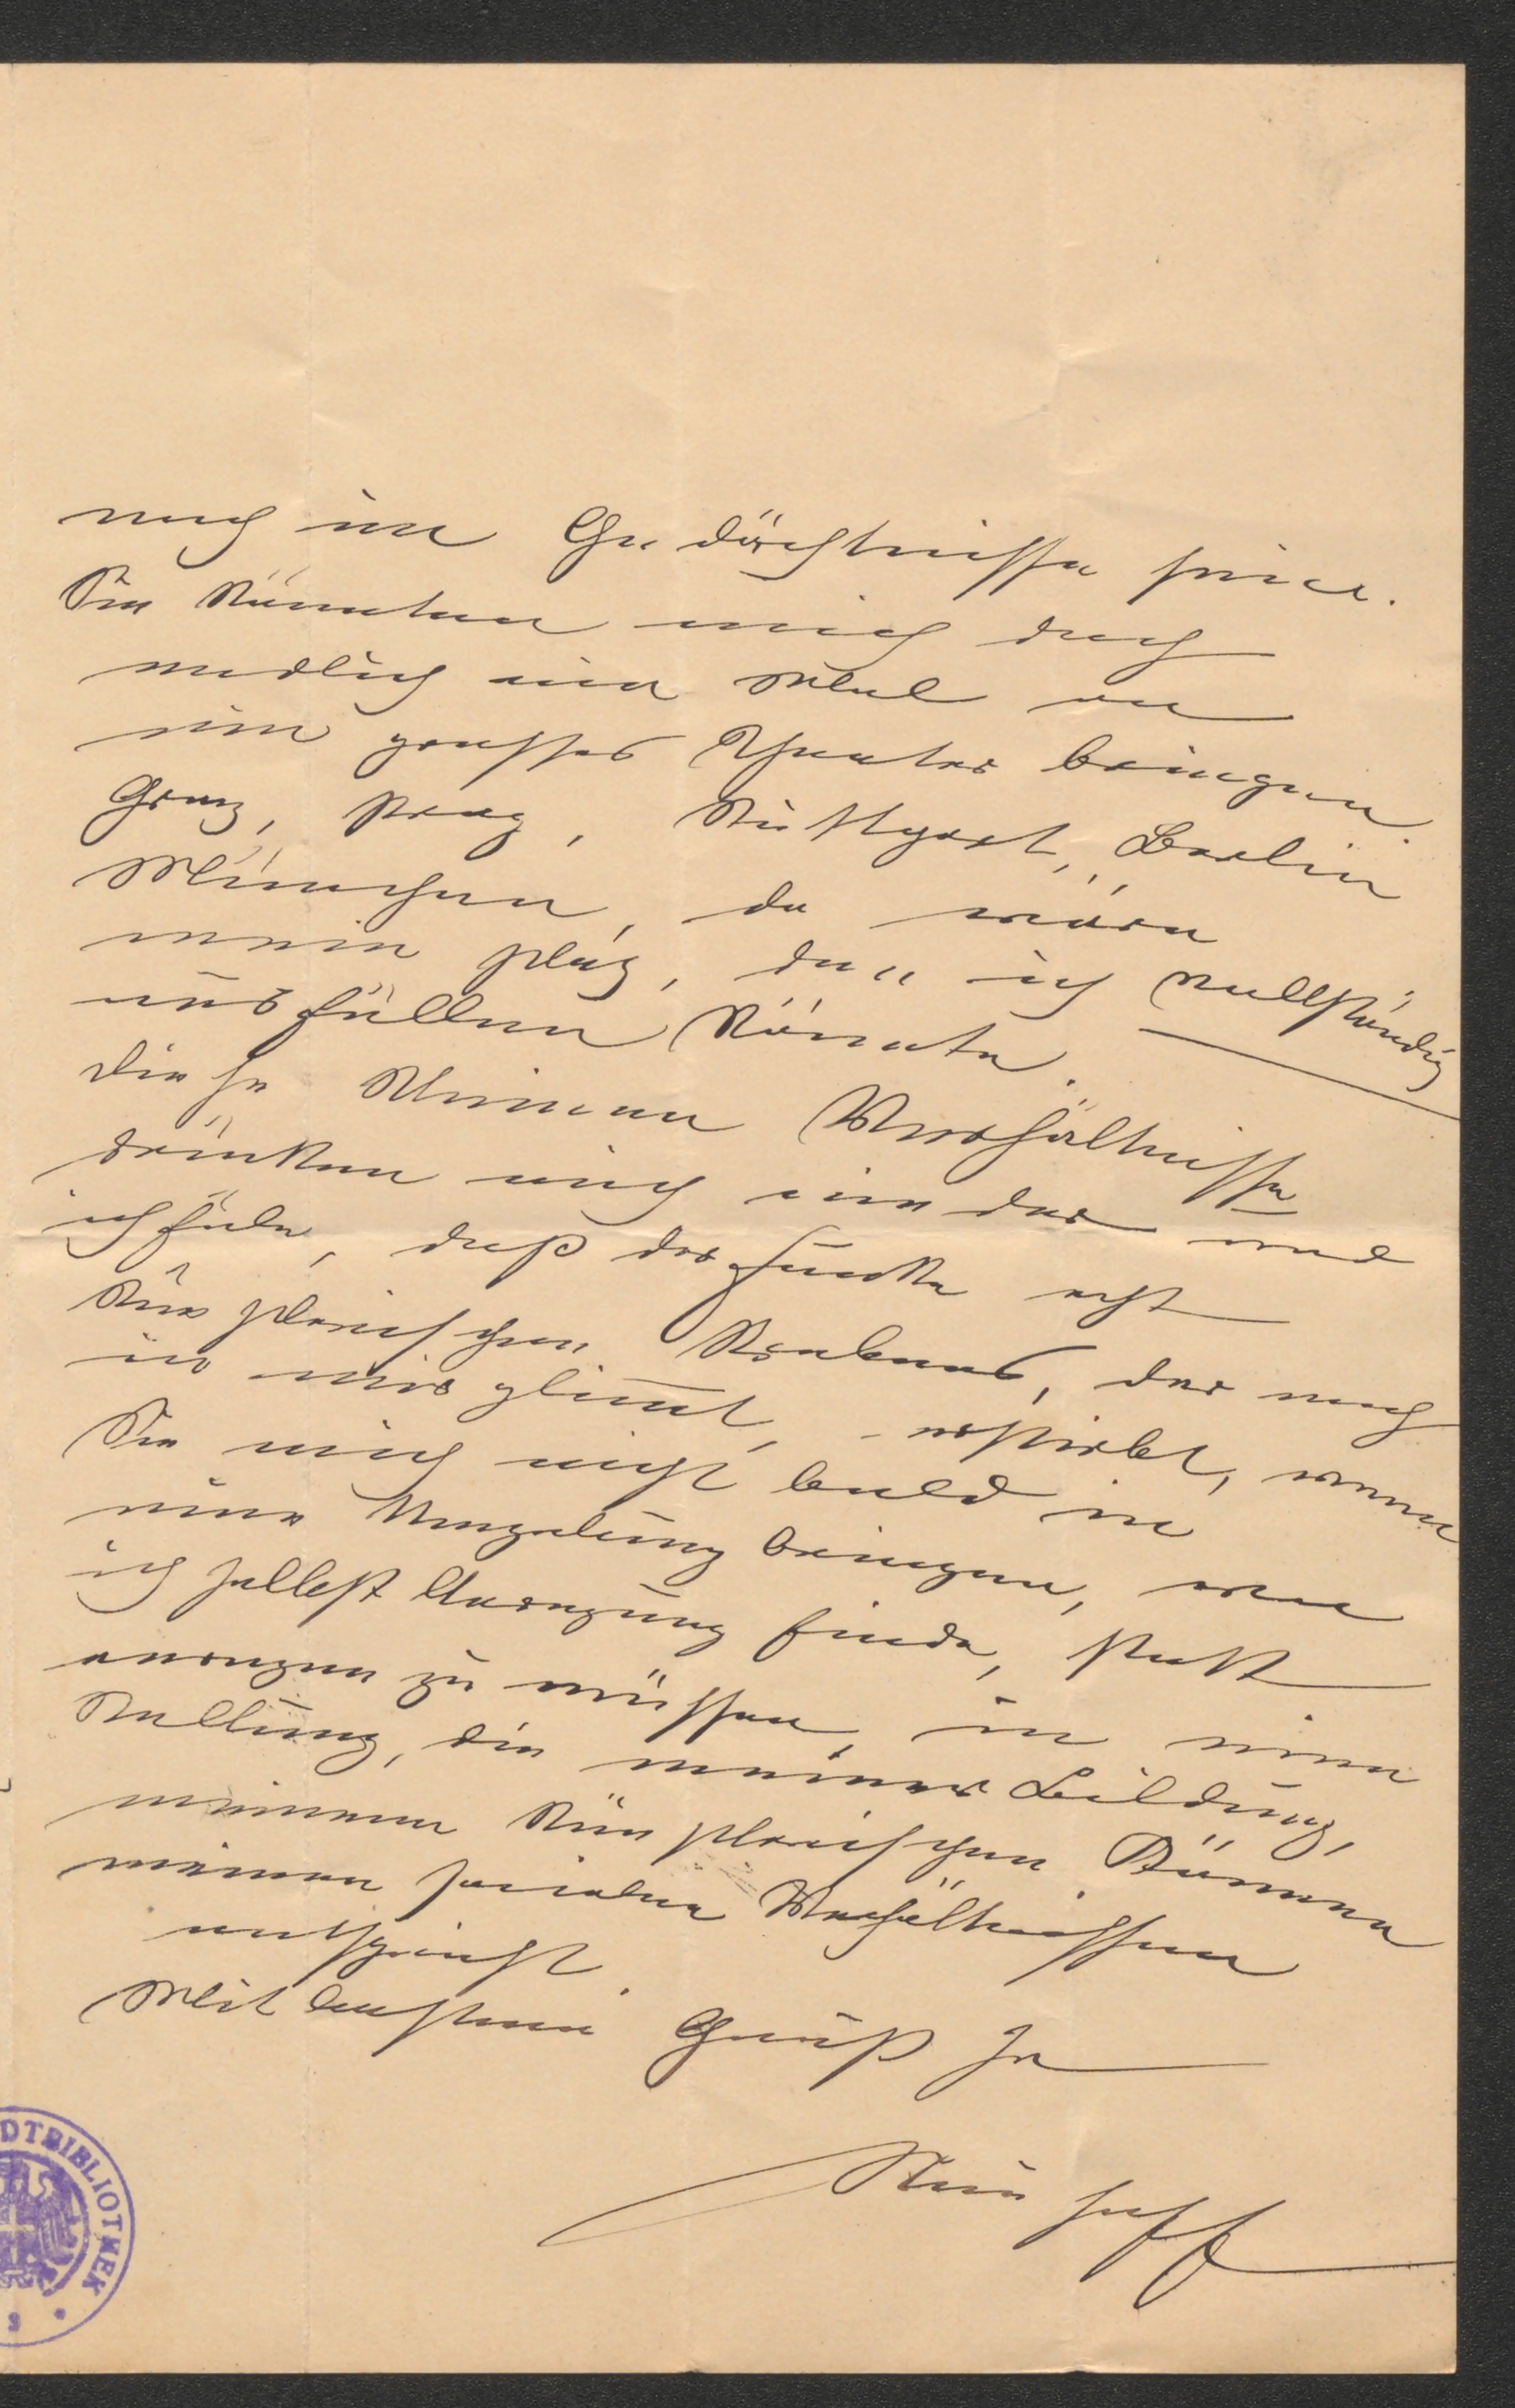 noch im Gedächtnisse sein.
Sie könnten mich doch
endlich ein Mal an
ein grosses Theater bringen.
Graz, Prag, Stuttgart, Berlin
München, da wäre
mein Platz, den ich vollständig
ausfüllen könnte.
Diese kleinen Verhältnisse
drücken mich nieder und
ich fühle, daß der Funke echt
künstlerischen Strebens, der noch
in mir glimmt, erstirbt, wenn
Sie mich nicht bald in
eine Umgebung bringen, wo
ich selbst Anregung finde, statt
anregen zu müssen, in eine
Stellung, die meiner Bildung,
meinem künstlerischen Können
meinen socialen Verhältnissen
entspricht.
Mit bestem Gruß Ihr
DTBIBLIOTHEK